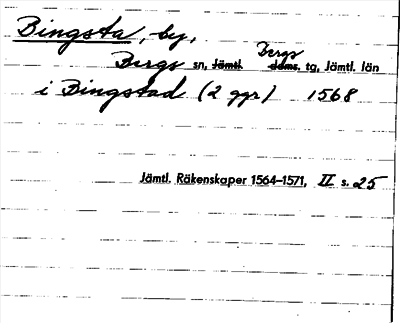 Bingsta, by,
Bergs sn, Jämtl. Bergs Jäms. tg, Jämtl. län
i Bingstad (2 ggr) 1568
Jämtl. Räkenskaper 1564–1571, II s. 25